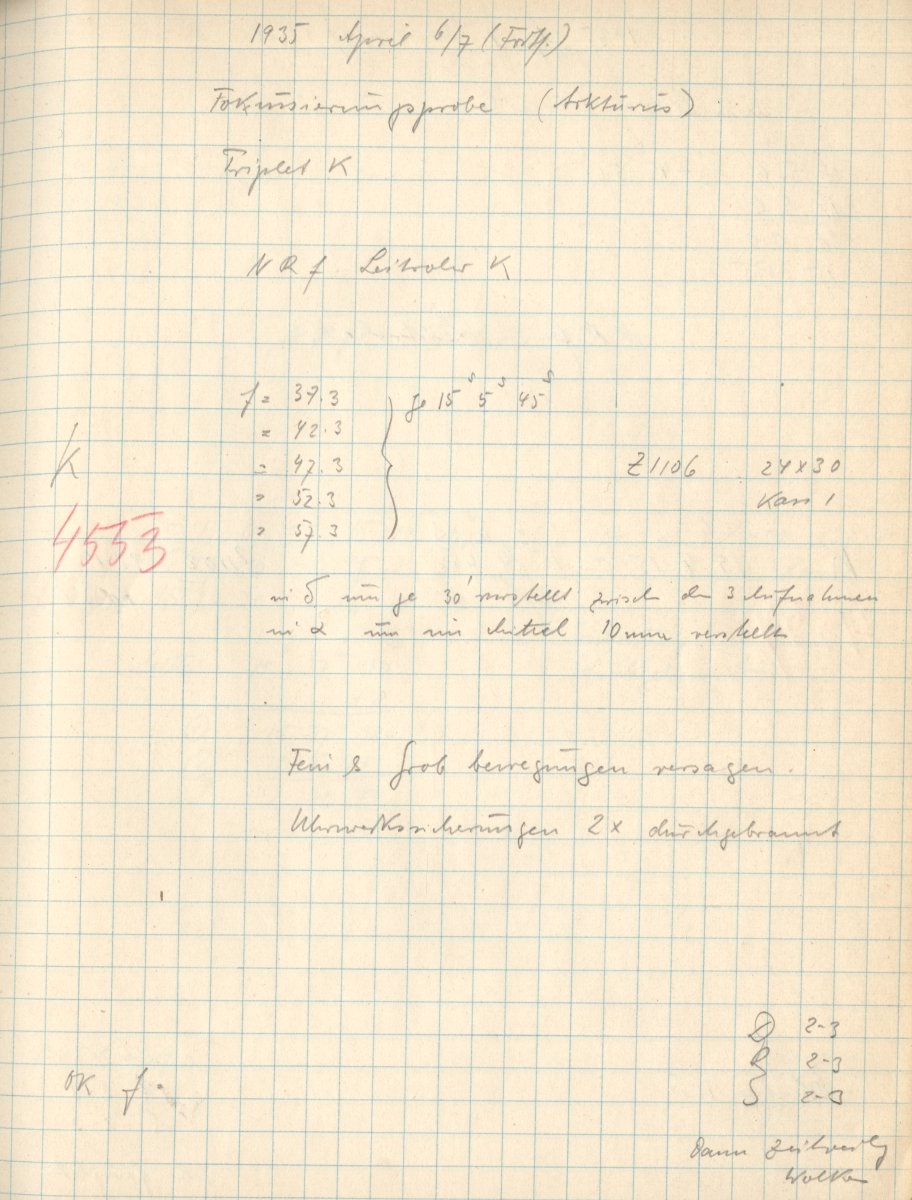 1935 April 6/7 (Forts.)
Fokussierungsprobe (Arkturus)
Triplet K
N R f Leitrohr K
f = 37.3 je 15ˢ 5ˢ 45ˢ
= 42.3
K = 47.3 Z1106 24x30
= 52.3 Kass 1
4553 = 57.3
in δ um je 30' verstellt zwisch den 3 Aufnahmen
in α um im Mittel 10mm verstellt
Fein & Grob bewegungen versagen.
Uhrwerkssicherungen 2x durchgebrannt
D 2-3
R 2-3
OK f. S 2-3
Dann zeitweilig
Wolken